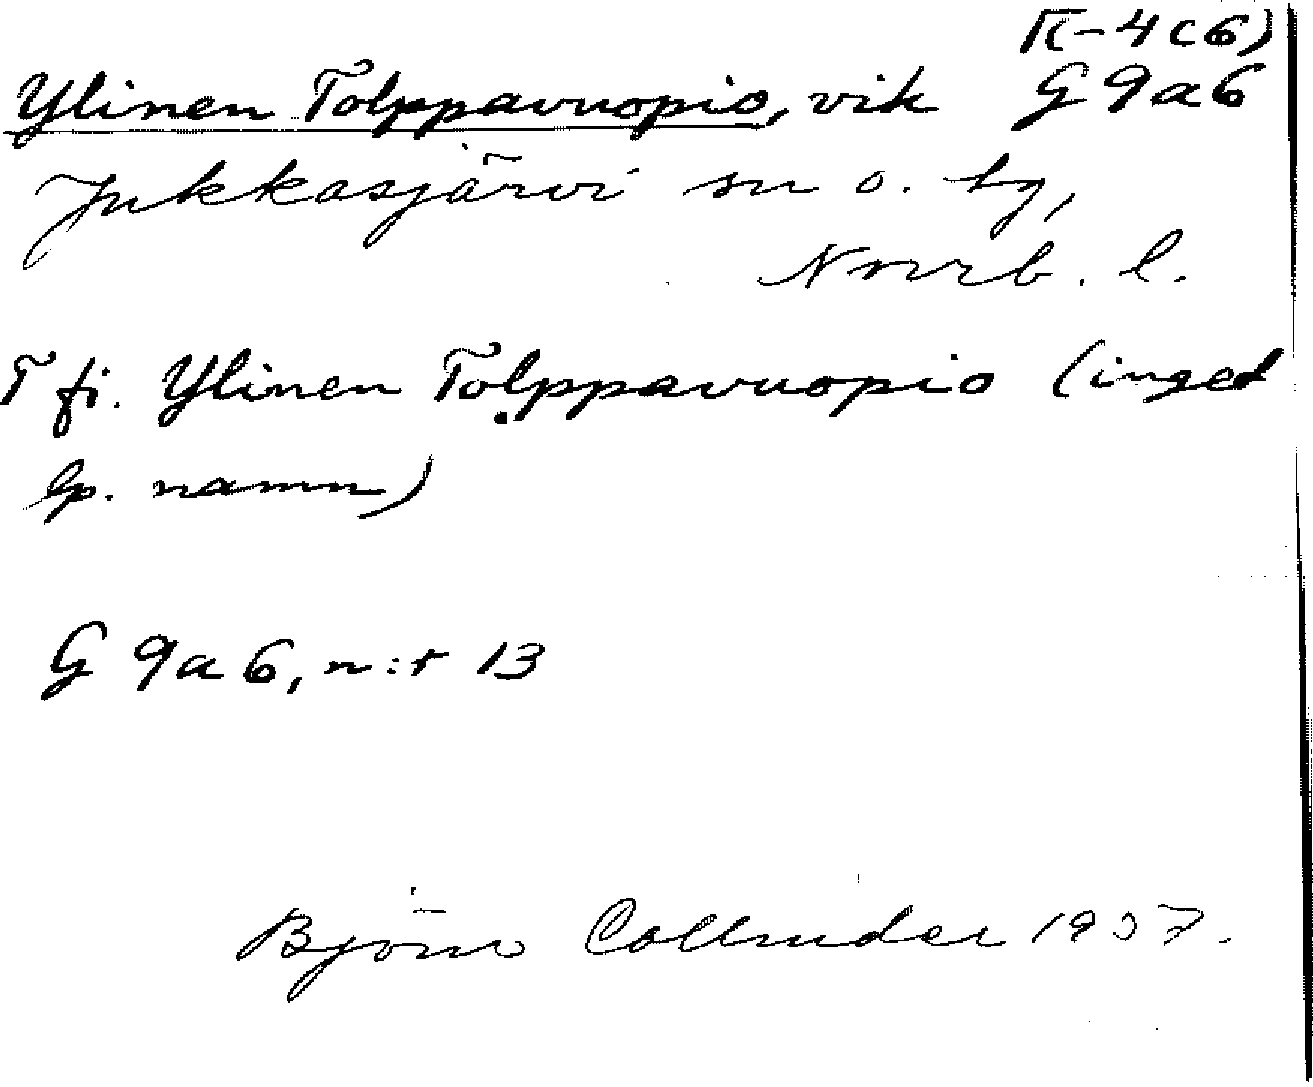 K-4c6)
Ylinen Tolppavuopio, vik G 9a6
Jukkasjärvi sn o. tg,
Norrb. l.
T fi. Ylinen Tolppavuopio (inget
lp. namn)
G 9a6, n:r 13
Björn Collinder 1937.